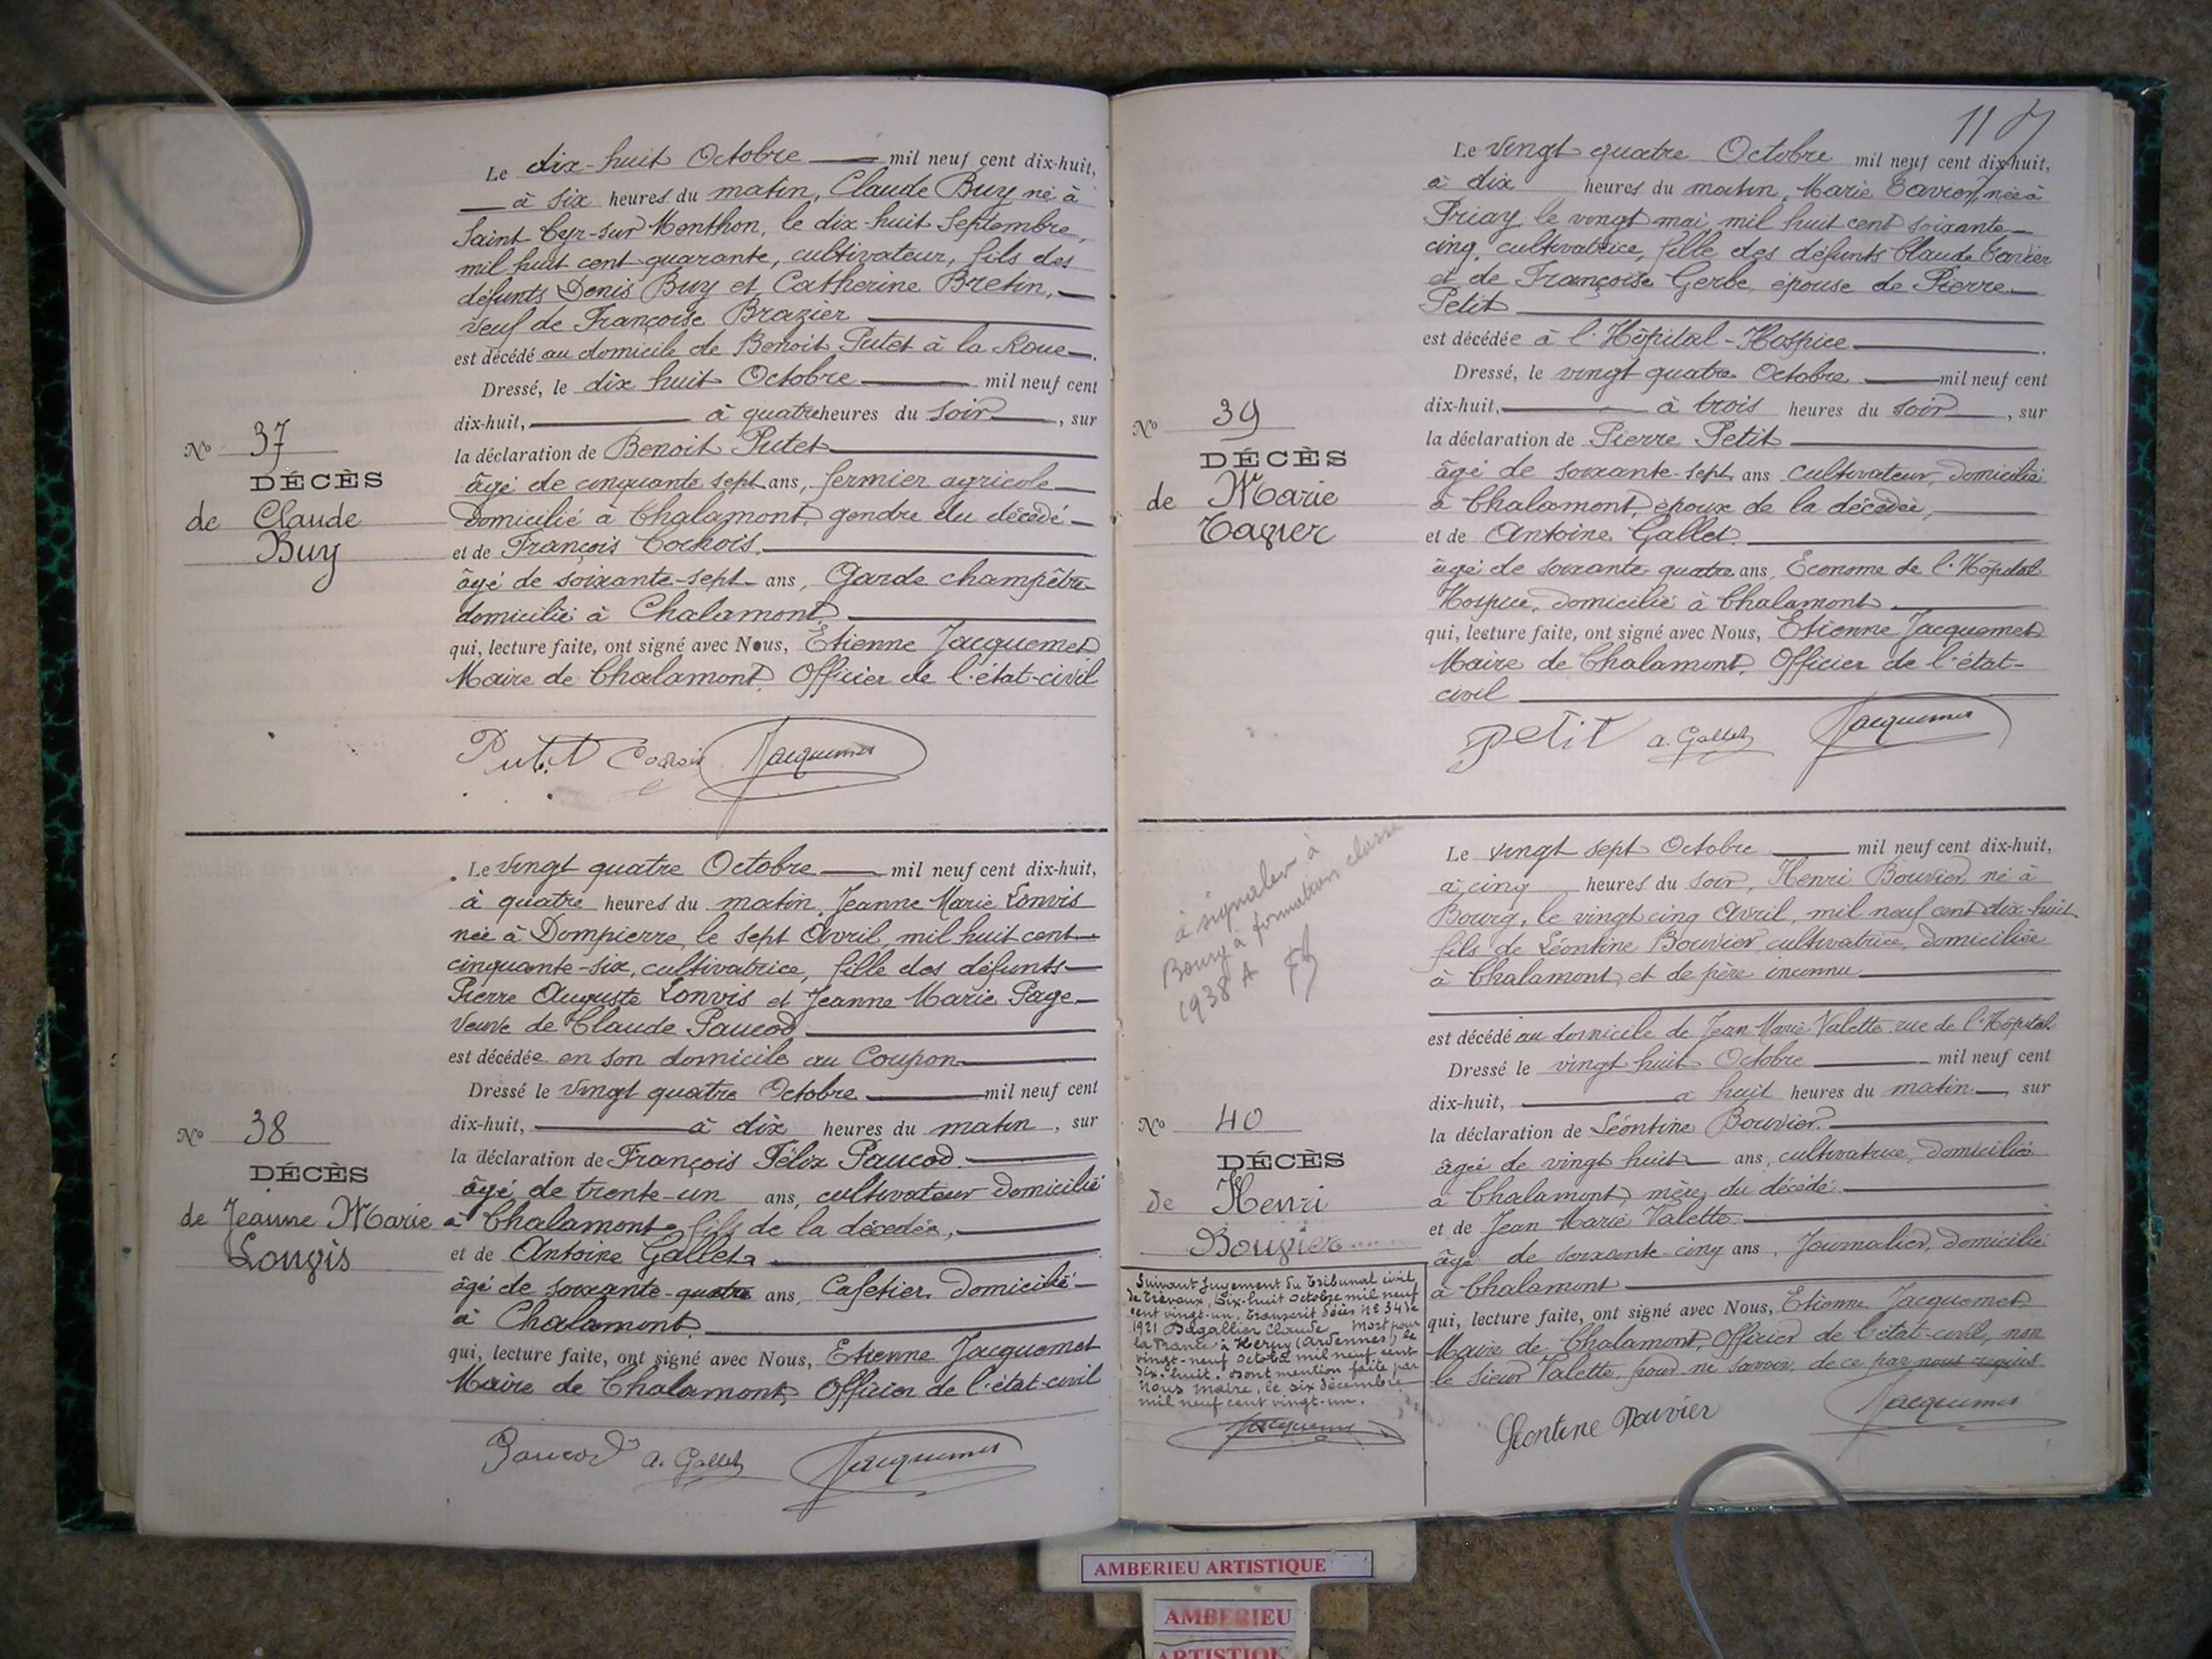 Le dix-huit Octobre mil neuf cent dix-huit,
à six heures du matin, Claude Buy né à
Saint Cyr-sur Menthon, le dix-huit Septembre,
mil huit cent quarante, cultivateur, fils des
défunts Denis Buy et Catherine Bretin,
veuf de Françoise Brazier
est décédé au domicile de Benoit Putet à la Roue.
Dressé, le dix huit Octobre mil neuf cent
dix-huit, à quatre heures du soir, sur
la déclaration de Benoit Putet
âgé de cinquante sept ans, fermier agricole
Domicilié à Chalamont, gendre du décédé
et de François Cochois.
âgé de soixante-sept ans, Garde champêtre
domicilié à Chalamont
qui, lecture faite, ont signé avec Nous, Etienne Jacquemet
Maire de Chalamont, Officier de l'état-civil
Putet Cochois Jacquemet
No 37
DÉCÈS
de Claude
Buy
Le vingt quatre Octobre mil neuf cent dix-huit,
à quatre heures du matin, Jeanne Marie Lonvis
née à Dompierre, le sept Avril, mil huit cent
cinquante-six, cultivatrice, fille des défunts
Pierre Auguste Lonvis et Jeanne Marie Page
Veuve de Claude Paucod
est décédée en son domicile au Coupon
Dressé le vingt quatre Octobre mil neuf cent
dix-huit, à dix heures du matin, sur
la déclaration de François Félix Paucod.
âgé de trente-un ans, cultivateur Domicilié
à Chalamont fils de la décédée,
et de Antoine Gallet
âgé de soixante-quatre ans, Cafetier, domicilié
à Chalamont
qui, lecture faite, ont signé avec Nous, Etienne Jacquemet
Maire de Chalamont, Officier de l'état-civil
Paucod A. Gallet Jacquemet
No 38
DÉCÈS
de Jeanne Marie
Lonvis
Le vingt quatre Octobre mil neuf cent dix-huit,
à dix heures du matin, Marie née à
Priay, le vingt mai, mil huit cent soixante
cinq, cultivatrice, fille des défunts Claude
et de Françoise Gerbe, épouse de Pierre
Petit
est décédée à l'Hôpital-Hospice
Dressé, le vingt quatre Octobre mil neuf cent
dix-huit, à trois heures du soir, sur
la déclaration de Pierre Petit
âgé de soixante-sept ans cultivateur, domicilié
à Chalamont, époux de la décédée,
et de Antoine Gallet
âgé de soixante quatre ans, Econome de l'Hôpital
Hospice, domicilié à Chalamont
qui, lecture faite, ont signé avec Nous, Etienne Jacquemet
Maire de Chalamont, Officier de l'état-
civil
Petit A. Gallet Jacquemet
No 39
DÉCÈS
de Marie
Le vingt sept Octobre mil neuf cent dix-huit,
à cinq heures du soir, Henri Bouvier, né à
Bourg, le vingt cinq Avril, mil neuf cent dix-huit
fils de Léontine Bouvier, cultivatrice, domiciliée
à Chalamont, et de père inconnu
est décédé au domicile de Jean Marie Valette rue de l'Hôpital
Dressé le vingt huit Octobre mil neuf cent
dix-huit, à huit heures du matin, sur
la déclaration de Léontine Bouvier
âgée de vingt huit ans, cultivatrice, domiciliée
à Chalamont, mère du décédé
et de Jean Marie Valette
âgé de soixante-cinq ans, Journalier, domicilié
à Chalamont
qui, lecture faite, ont signé avec Nous, Etienne Jacquemet
Maire de Chalamont, Officier de l'état-civil, non
le sieur Valette, pour ne savoir, de ce par nous requis
Léontine Bouvier Jacquemet
à signaler à
Bourg à formation classe
1938 A
No 40
DÉCÈS
de Henri
Bouvier
Suivant Jugement du Tribunal civil
de Trévoux, dix-huit octobre mil neuf
cent vingt-un, transcrit décès No 34 de
1921 Dagallier Claude Mort pour
la France à Herpy (Ardennes) le
vingt-neuf octobre mil neuf cent
dix-huit. Dont mention faite par
Nous Maire, le six décembre
mil neuf cent vingt-un.
Jacquemet
AMBERIEU ARTISTIQUE
AMBERIEU